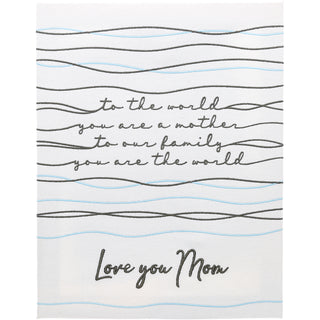 to the world
you are a mother
to our family
you are the world
Love you Mom